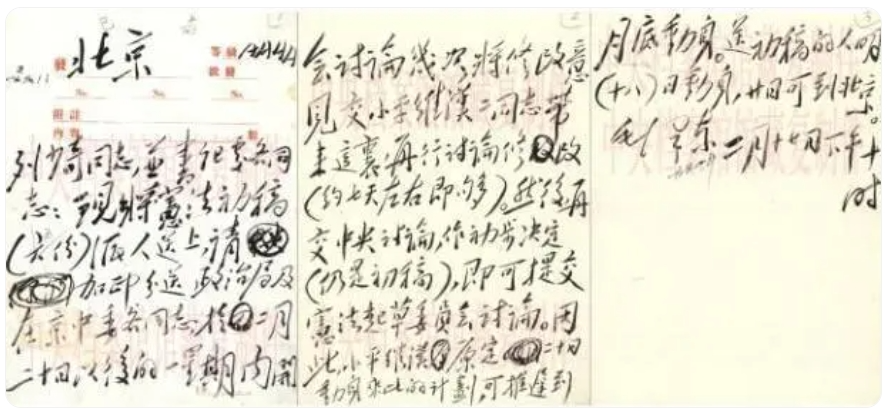 北京
刘少奇同志,并书记处各同
志:兹将宪法初稿
(五份)派人送上,请
加印分送政治局及
在京中委各同志,于二月
二十日以后的一星期内開
会讨論幾次,将修改意
見交小平、維漢二同志带
来這裏,再行讨論修改
(约七天左右即够)。然後再
交中央讨論,作初步决定
(仍是初稿),即可提交
憲法起草委員会讨論。因
此,小平維漢原定二十日
動身来此的计劃,可推遲到
月底動身。送初稿的人明
(十八)日動身,廿日可到北京。
毛澤東 二月十七日下午十
时